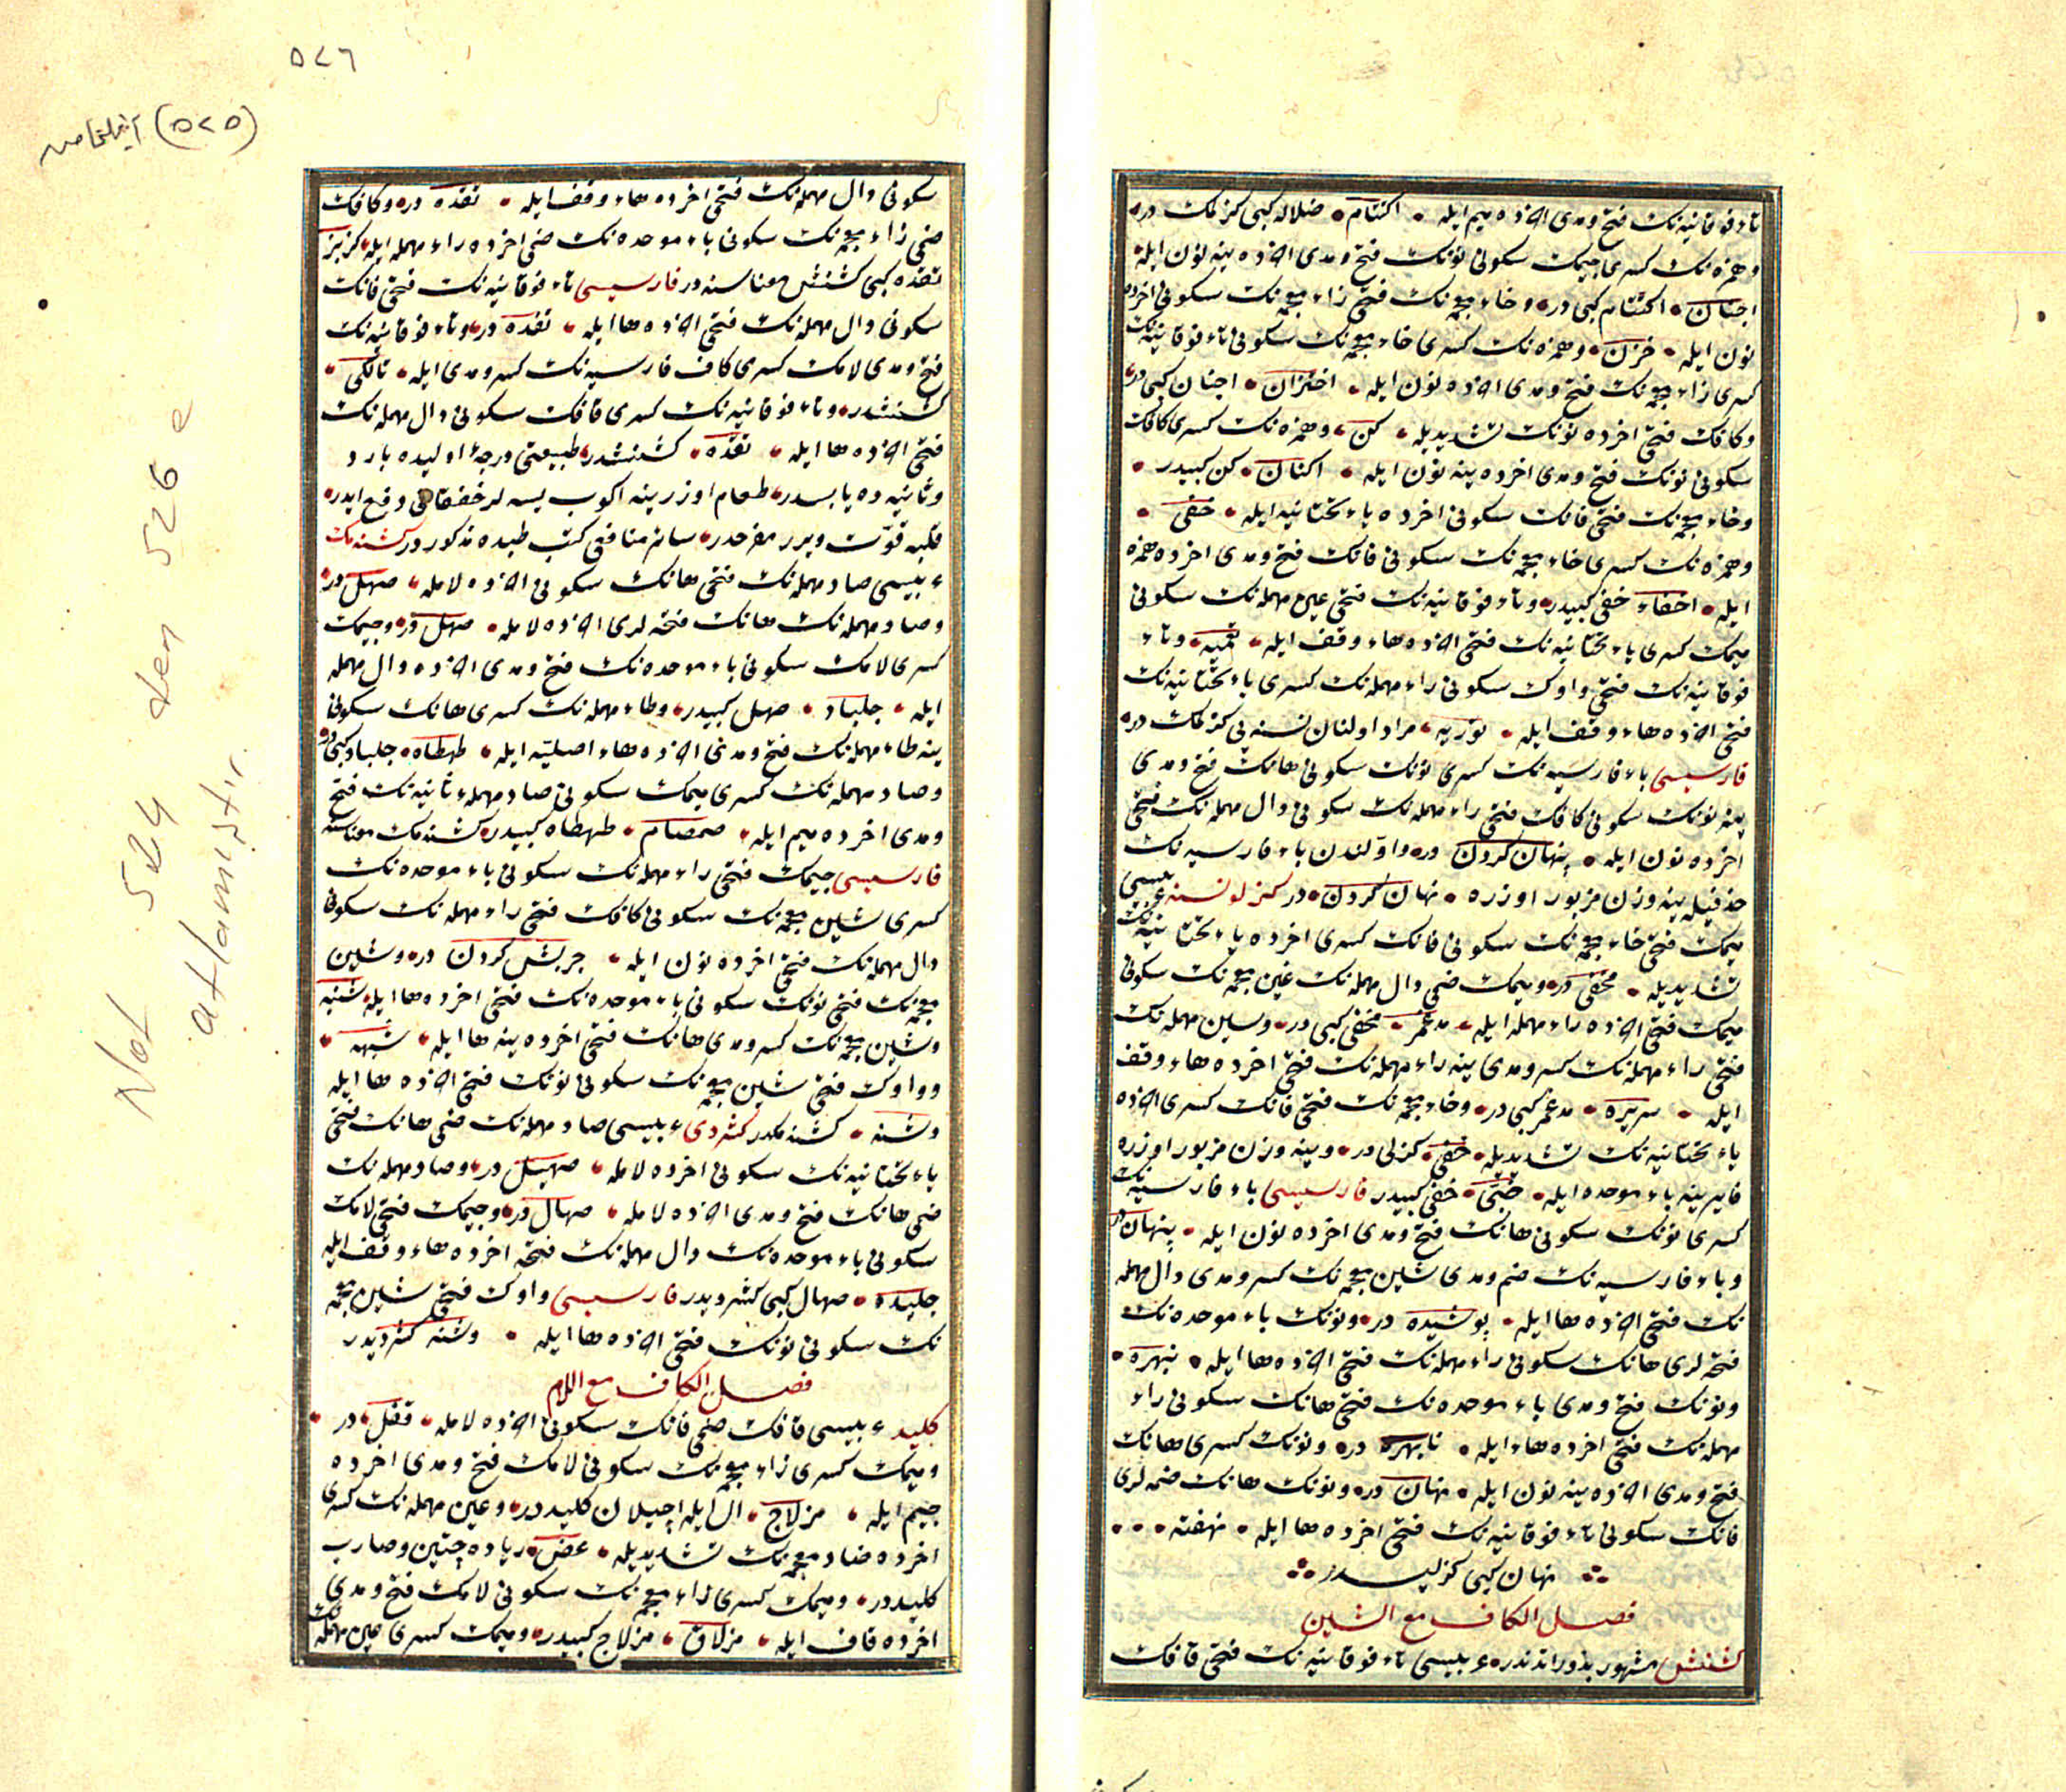 تاء فوقانیه‌نك فتح ومدی اخرده میم ایله • اكتتام • ضلاله كبی كزلمك در
وهمزه‌نك كسری جیمك سكونی نونك فتح ومدی اخرده ینه نون ایله
اجتنان • اكتتام كبی در • وخاء معجمه‌نك فتحی زاء معجمه‌نك سكونی اخرده
نون ایله • خزن • وهمزه‌نك كسری خاء معجمه‌نك سكونی تاء فوقانیه‌نك
كسری زاء معجمه‌نك فتح ومدی اخرده نون ایله • اختزان • اجتنان كبی در
وكافك فتحی اخرده نونك تشدیدیله • كن • وهمزه‌نك كسری كافك
سكونی نونك فتح ومدی اخرده ینه نون ایله • اكنان • كن كبیدر •
وخاء معجمه‌نك فتحی فانك سكونی اخرده یاء تحتانیه ایله • خفی •
وهمزه‌نك كسری خاء معجمه‌نك سكونی فانك فتح ومدی اخرده همزه
ایله • اخفاء خفی كبیدر • وتاء فوقانیه‌نك فتحی عین مهمله‌نك سكونی
میمك كسری یاء تحتانیه‌نك فتحی اخرده هاء وقف ایله • تعمیه • وتاء
فوقانیه‌نك فتحی واوك سكونی راء مهمله‌نك كسری یاء تحتانیه‌نك
فتحی اخرده هاء وقف ایله • توریه • مراد اولنان نسنه‌یی كزلمك در •
فارسیسی باء فارسیه‌نك كسری نونك سكونی هانك فتح ومدی
ینه نونك سكونی كافك فتحی راء مهمله‌نك سكونی دال مهمله‌نك فتحی
اخرده نون ایله • پنهان كردن در • واولندن باء فارسیه‌نك
حذفیله ینه وزن مزبور اوزره • نهان كردن • در كزلو نسنه عربیسی
میمك فتحی خاء معجمه‌نك سكونی فانك كسری اخرده یاء تحتانیه‌نك
تشدیدیله • مخفی در • ومیمك ضمی دال مهمله‌نك غین معجمه‌نك سكونی
میمك فتحی اخرده راء مهمله ایله • مدغمر • مخفی كبی در • وسین مهمله‌نك
فتحی راء مهمله‌نك كسر ومدی ینه راء مهمله‌نك فتحی اخرده هاء وقف
ایله • سریره • مدغمر كبی در • وخاء معجمه‌نك فتحی فانك كسری اخرده
یاء تحتانیه‌نك تشدیدیله • خفی • كزلی در • وینه وزن مزبور اوزره
فا یرینه باء موحده ایله • خبی • خفی كبیدر فارسیسی باء فارسیه‌نك
كسری نونك سكونی هانك فتح ومدی اخرده نون ایله • پنهان در
وباء فارسیه‌نك ضم ومدی شین معجمه‌نك كسر ومدی دال مهمله
نك فتحی اخرده ها ایله • پوشیده در • ونونك باء موحده‌نك
فتحه‌لری هانك سكونی راء مهمله‌نك فتحی اخرده ها ایله • نبهره •
ونونك فتح ومدی باء موحده‌نك فتحی هانك سكونی راء
مهمله‌نك فتحی اخرده هاء ایله • نابهره در • ونونك كسری هانك
فتح ومدی اخرده ینه نون ایله • نهان در • ونونك هانك ضمه‌لری
فانك سكونی تاء فوقانیه‌نك فتحی اخرده ها ایله • نهفته • • •
نهان كبی كزلیدر
فصل الكاف مع الشین
كشنش مشهور بذوراتدندر • عربیسی تاء فوقانیه‌نك فتحی قافك
٥٢٦
(٥٢٥)
سكونی دال مهمله‌نك فتحی اخرده هاء وقف ایله • تقده در • وكافك
ضمی زاء معجمه‌نك سكونی باء موحده‌نك ضمی اخرده راء مهمله ایله • كزبر
تقده كبی كشنش معناسنه در فارسیسی تاء فوقانیه‌نك فتحی فانك
سكونی دال مهمله‌نك فتحی اخرده ها ایله • تفده در • وتاء فوقانیه‌نك
فتح ومدی لامك كسری كاف فارسیه‌نك كسر ومدی ایله • تالكی •
كشنشدر • وتاء فوقانیه‌نك كسری قافك سكونی دال مهمله‌نك
فتحی اخرده ها ایله • تقده • كشنشدر • طبیعتی درجهٔ اولیده بارد
وثانیه‌ده یابسدر • طعام اوزرینه اكوب یسه‌لر خفقانی دفع ایدر •
قلبه قوّت ویرر مفرحدر • سائر منافعی كتب طبده مذكوردر كشنه‌مك
عربیسی صاد مهمله‌نك فتحی هانك سكونی اخرده لامله • صهل در •
وصاد مهمله‌نك هانك فتحه‌لری اخرده لامله • صهل در • وجیمك
كسری لامك سكونی باء موحده‌نك فتح ومدی اخرده دال مهمله
ایله • جلباد • صهل كبیدر • وطاء مهمله‌نك كسری هانك سكونی
ینه طاء مهمله‌نك فتح ومدی اخرده هاء اصلیّه ایله • طهطاه • جلباد كبی در
وصاد مهمله‌نك كسری میمك سكونی صاد مهملهء ثانیه‌نك فتح
ومدی اخرده میم ایله • صمصام • طهطاه كبیدر • كشنه‌مك معناسنه
فارسیسی جیمك فتحی راء مهمله‌نك سكونی باء موحده‌نك
كسری شین معجمه‌نك سكونی كافك فتحی راء مهمله‌نك سكونی
دال مهمله‌نك فتحی اخرده نون ایله • جربش كردن در • وشین
معجمه‌نك فتحی نونك سكونی باء موحده‌نك فتحی اخرده ها ایله • شنبه
وشین معجمه‌نك كسر ومدی هانك فتحی اخرده ینه ها ایله • شیهه •
وواوك فتحی شین معجمه‌نك سكونی نونك فتحی اخرده ها ایله
وشنه • كشنه‌مكدر كشردی عربیسی صاد مهمله‌نك ضمی هانك فتحی
یاء تحتانیه‌نك سكونی اخرده لامله • صهیل در • وصاد مهمله‌نك
ضمی هانك فتح ومدی اخرده لامله • صهال در • وجیمك فتحی لامك
سكونی باء موحده‌نك دال مهمله‌نك فتحه اخرده هاء وقف ایله
جلبده • صهال كبی كشردیدر فارسیسی واوك فتحی شین معجمه
نك سكونی نونك فتحی اخرده ها ایله • وشنه كشردیدر
فصل الكاف مع اللام
كلید عربیسی قافك ضمی فانك سكونی اخرده لامله • قفل • در •
ومیمك كسری زاء معجمه‌نك سكونی لامك فتح ومدی اخرده
جیم ایله • مزلاج • ال ایله اچیلان كلیددر • وعین مهمله‌نك كسری
اخرده ضاد معجمه‌نك تشدیدیله • عض • زیاده چتین وصارب
كلیددر • ومیمك كسری زاء معجمه‌نك سكونی لامك فتح ومدی
اخرده قاف ایله • مزلاق • مزلاج كبیدر • ومیمك كسری عین مهمله‌نك
Not 524 den 526 e
atlamıştır.